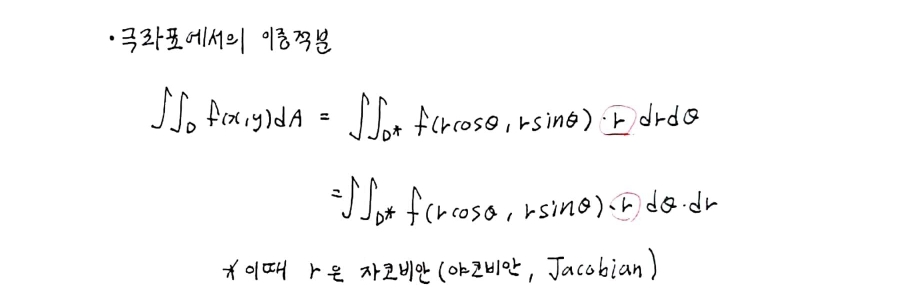 ·극좌표에서의 이중적분
∬_D f(x,y)dA = ∬_D* f(rcosθ, rsinθ)·r drdθ
=∬_D* f(rcosθ, rsinθ)·r dθ·dr
*이때 r은 자코비안(야코비안, Jacobian)